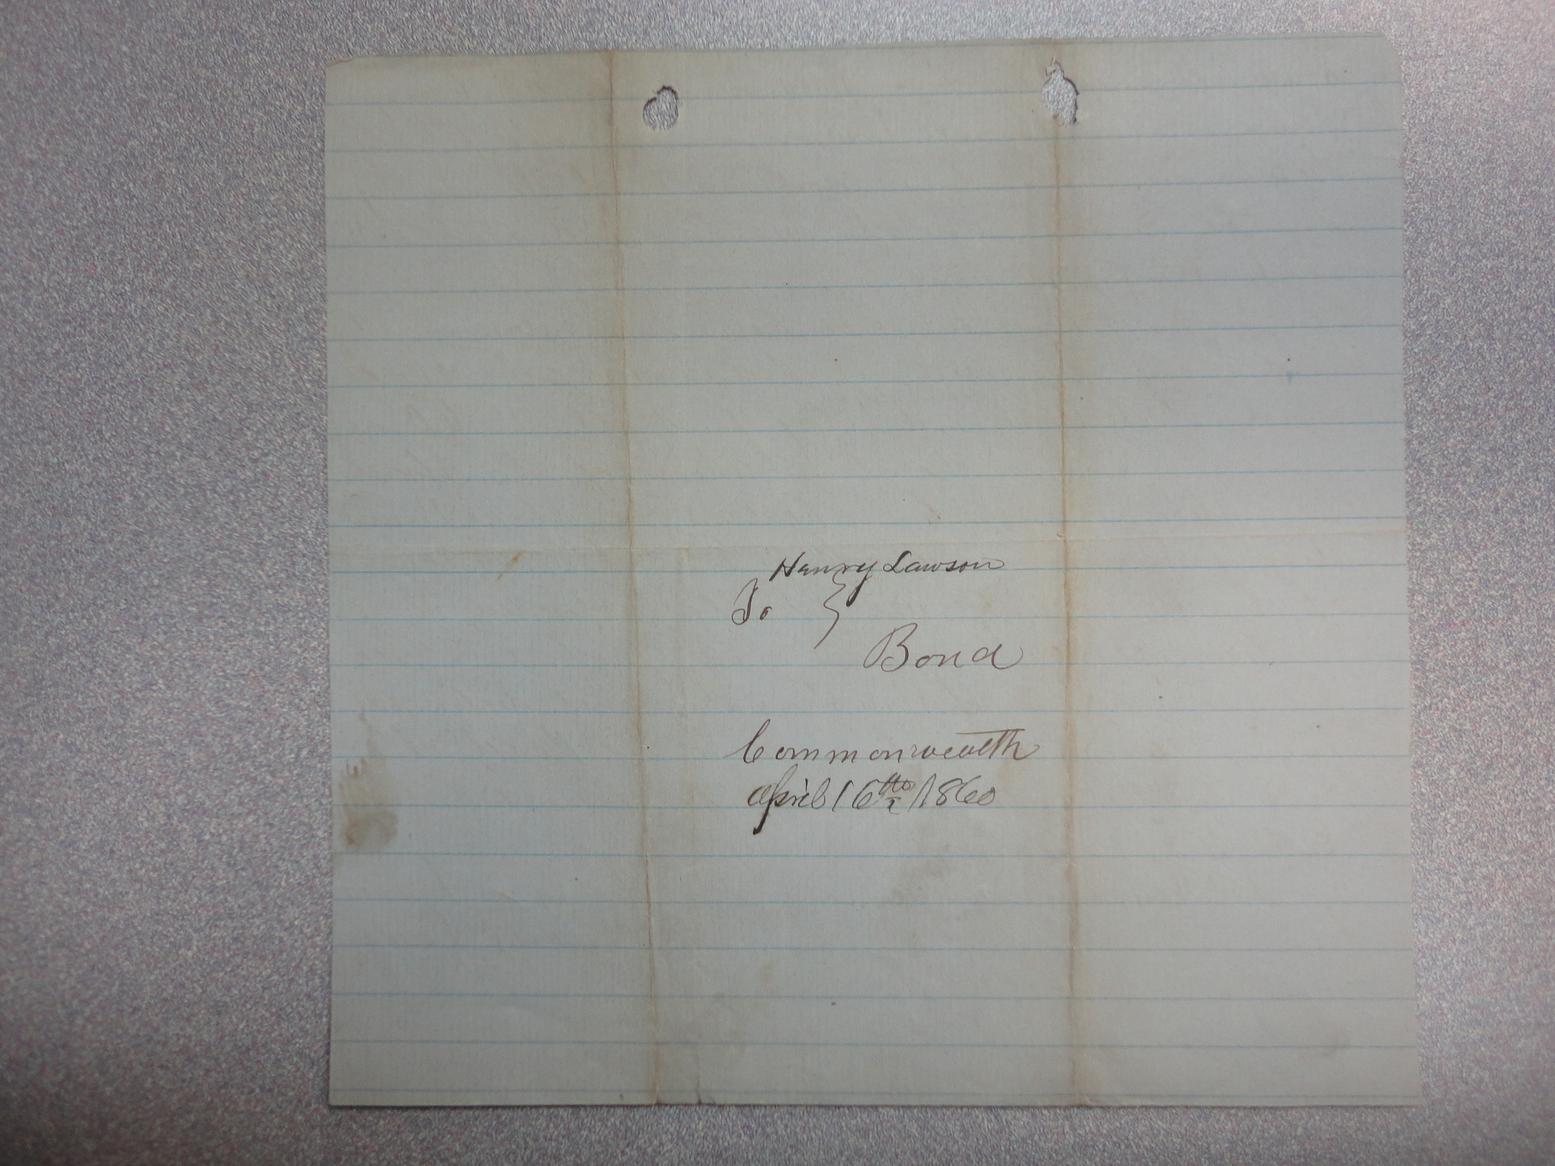 Henry Lawson
To }
Bond
Commonwealth
April 16th 1860